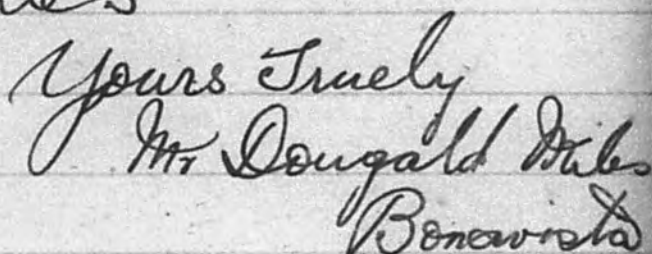 Yours Truely
Mr Dougald Miles
Bonavista